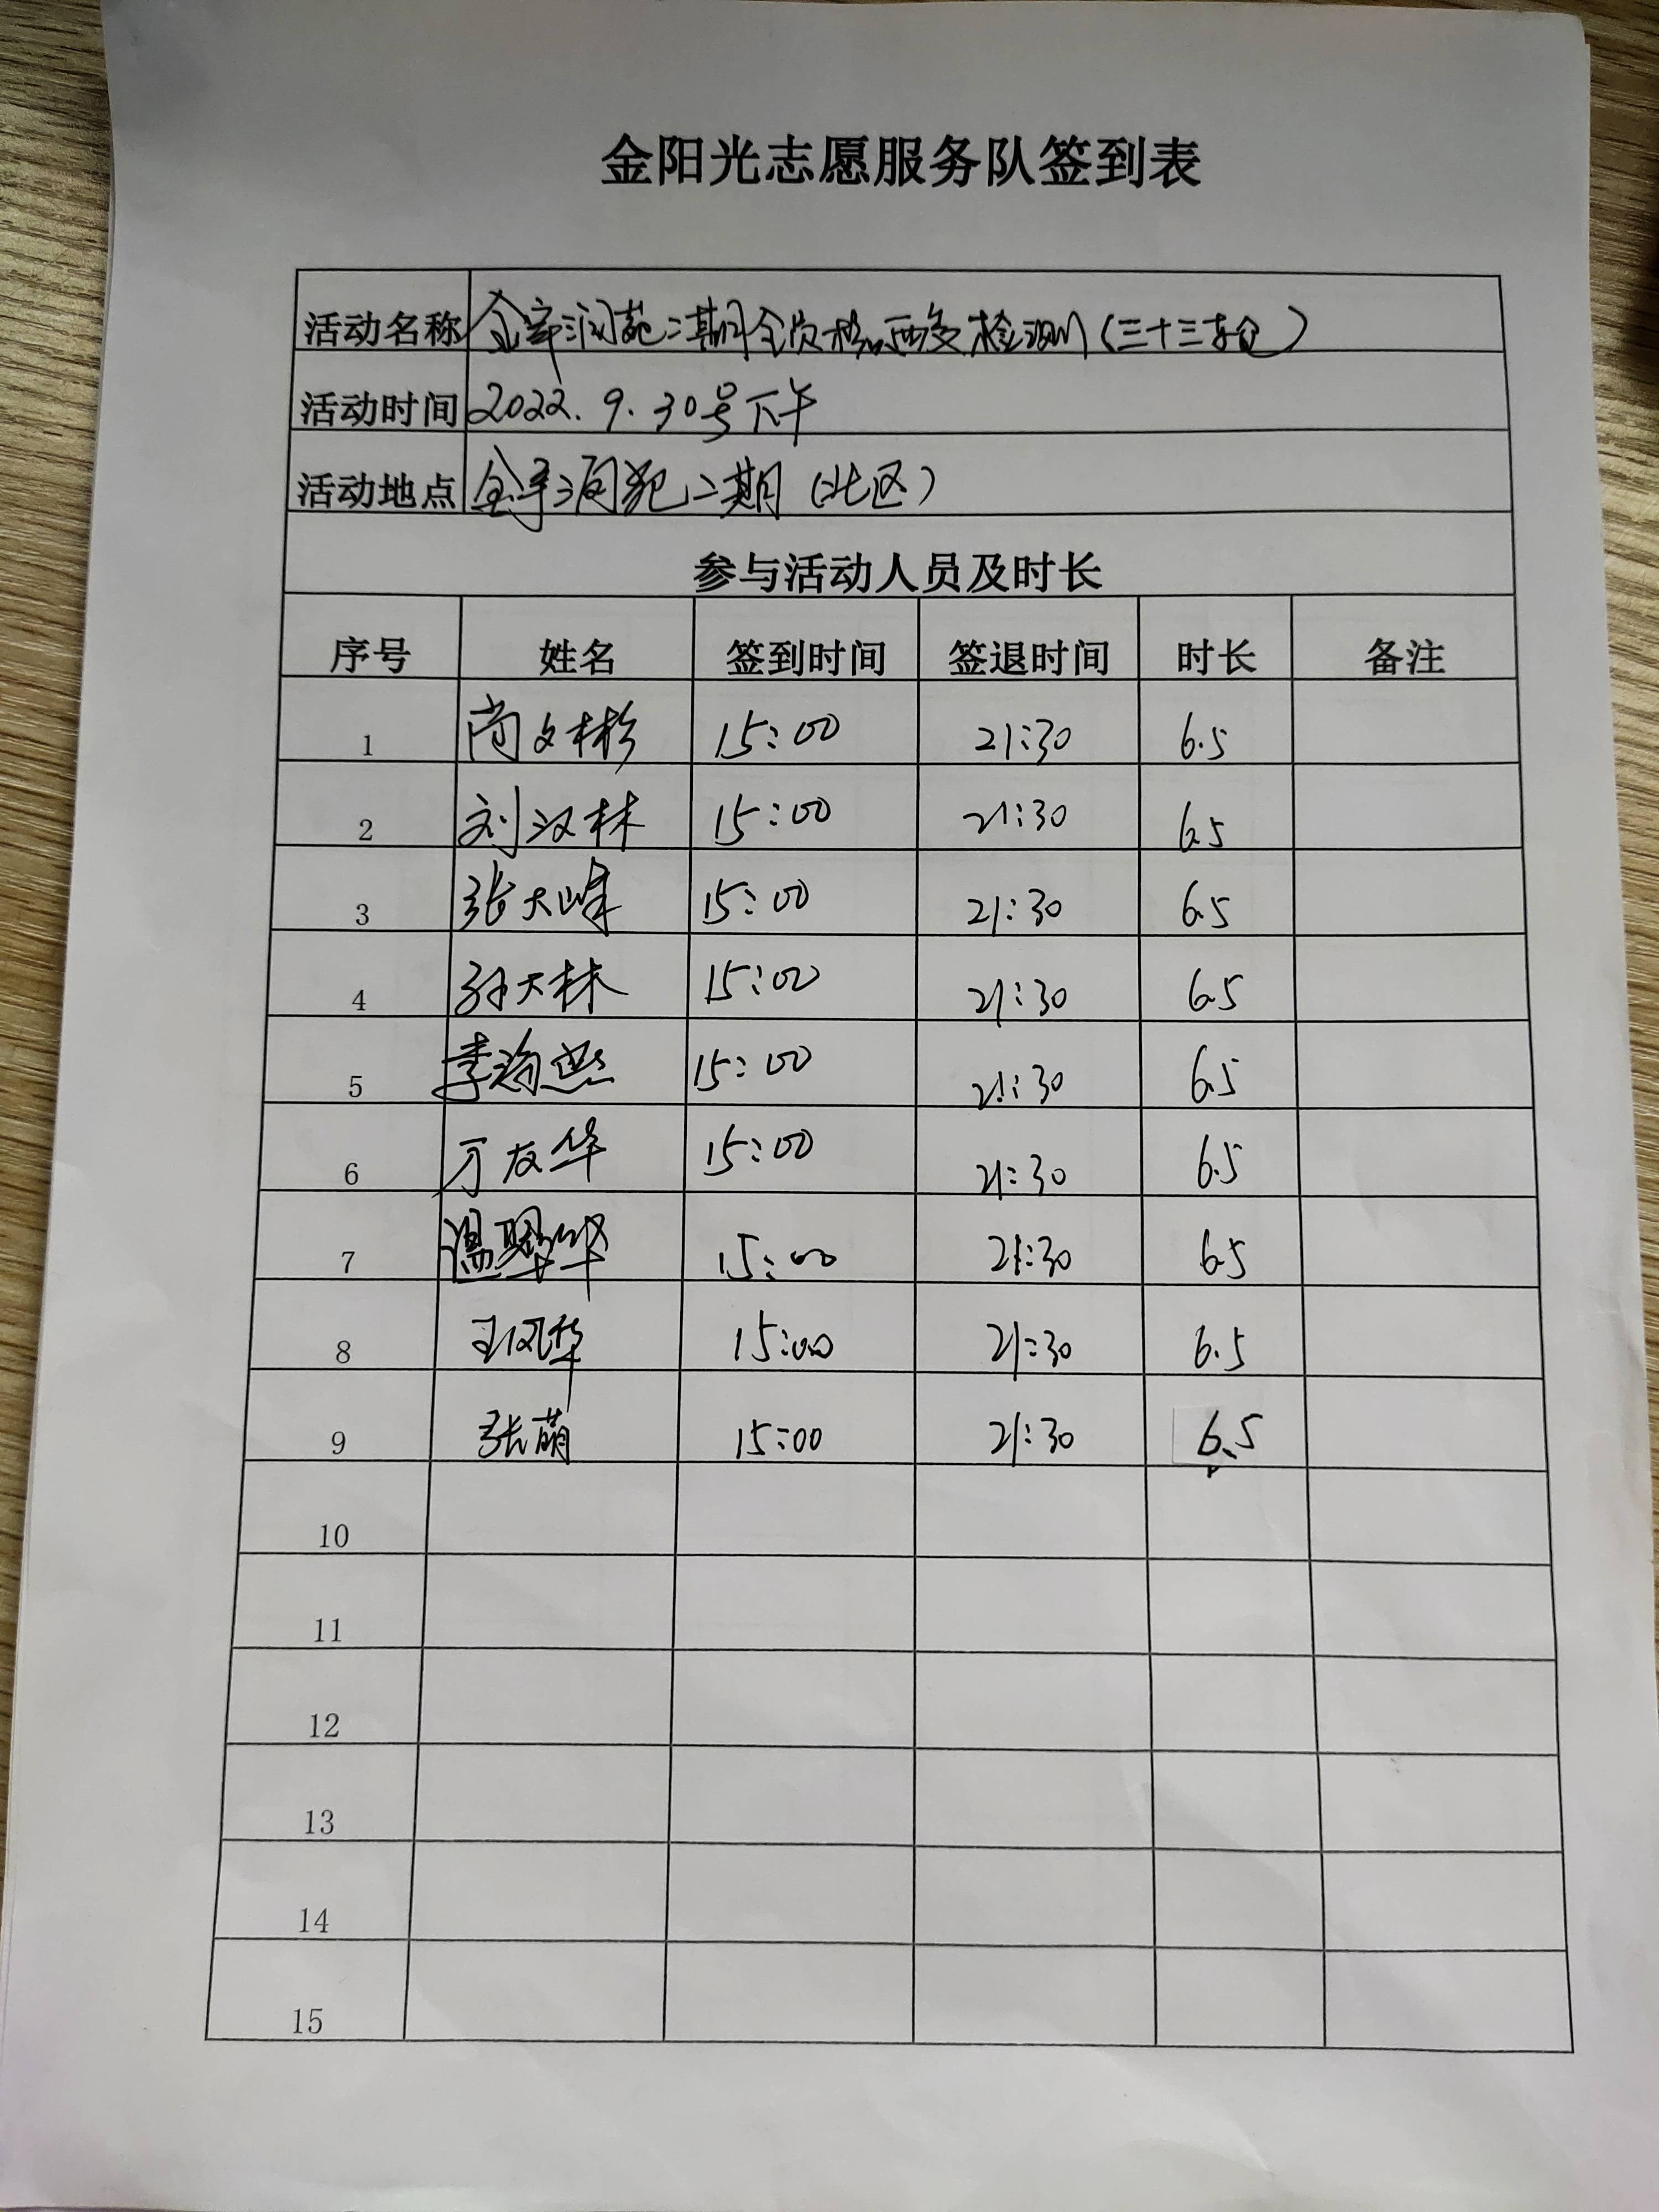 金阳光志愿服务队签到表
活动名称 金辛润苑二期全员核酸检测(三十三轮)
活动时间 2022.9.30号下午
活动地点 金辛润苑二期(北区)
参与活动人员及时长
序号 姓名 签到时间 签退时间 时长 备注
1 尚文彬 15:00 21:30 6.5
2 刘汉林 15:00 21:30 6.5
3 张大峰 15:00 21:30 6.5
4 孙大林 15:00 21:30 6.5
5 李海燕 15:00 21:30 6.5
6 万友华 15:00 21:30 6.5
7 温翠华 15:00 21:30 6.5
8 王凤华 15:00 21:30 6.5
9 张萌 15:00 21:30 6.5
10
11
12
13
14
15